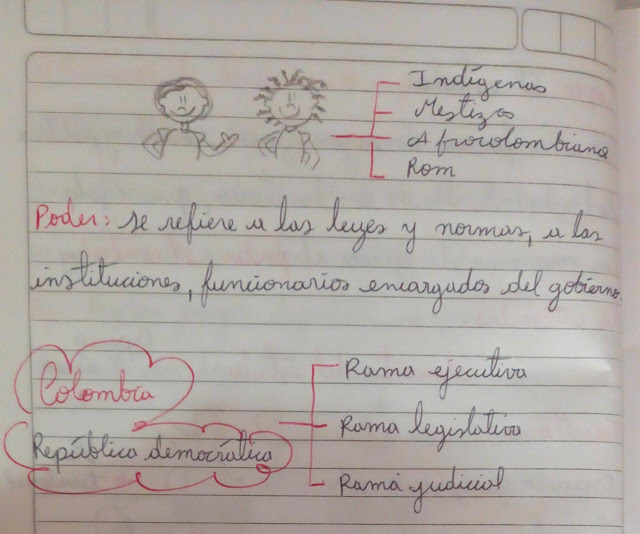 Indígenas
Mestizos
Afrocolombiano
Rom
Poder: se refiere a las leyes y normas, a las
instituciones, funcionarios encargados del gobierno.
Colombia
República democrática
Rama ejecutiva
Rama legislativa
Rama judicial